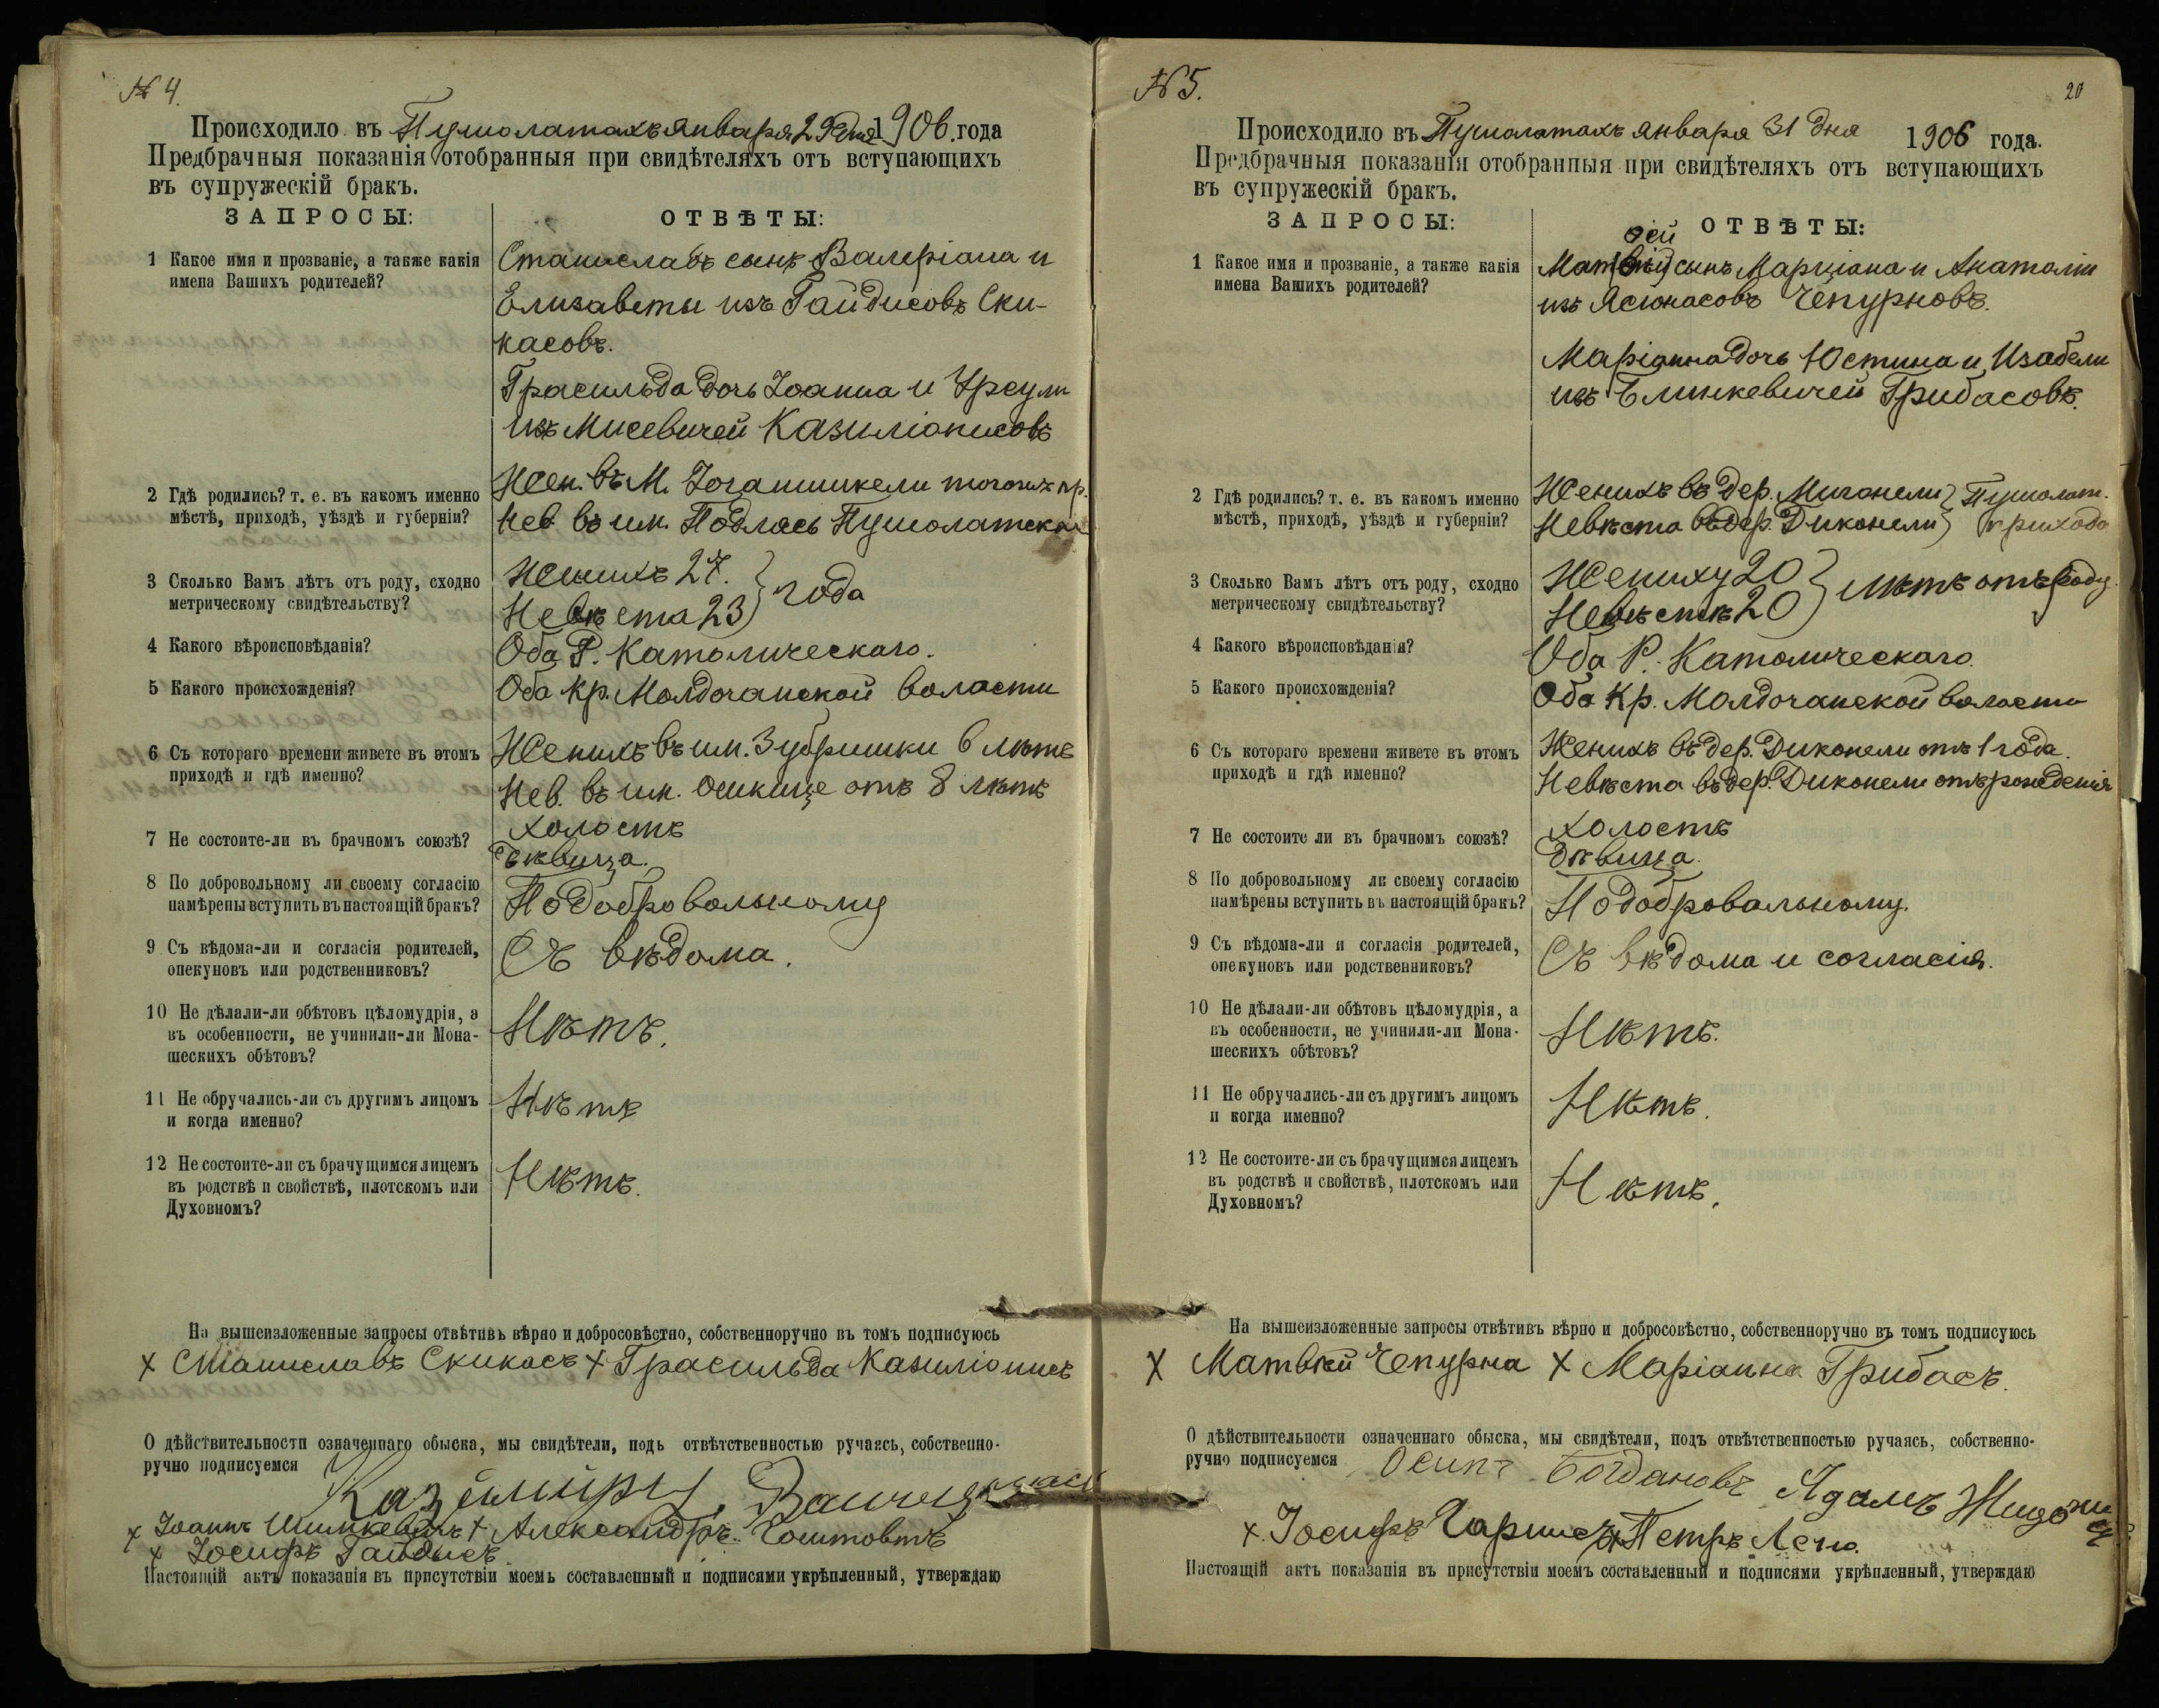 № 4.
Происходило въ Пушолатахъ января 29 дня 1906. года
Предбрачныя показанія отобранныя при свидѣтеляхъ отъ вступающихъ
въ супружескій бракъ.
ЗАПРОСЫ: ОТВѢТЫ:
1 Какое имя и прозваніе, а также какія
имена Вашихъ родителей?
Станиславъ сынъ Валеріана и
Елизаветы изъ Гайдисовъ Ски-
касовъ.
Грасильда дочь Іоанна и Урсули
изъ Мисевичей Казиліонисовъ
2 Гдѣ родились? т. е. въ какомъ именно
мѣстѣ, приходѣ, уѣздѣ и губерніи?
Жен. въ М. Іоганишкели тогожъ пр.
Нев. въ им. Подлясь Пушолатскаг
3 Сколько Вамъ лѣтъ отъ роду, сходно
метрическому свидѣтельству?
Женихъ 27.
Невѣста 23 } года
4 Какого вѣроисповѣданія?
Оба Р. Католическаго.
5 Какого происхожденія?
Оба кр. Молдочанской воласти
6 Съ котораго времени живете въ этомъ
приходѣ и гдѣ именно?
Женихъ въ им. Зубришки 6 лѣтъ
Нев. въ им. Ошкище отъ 8 лѣтъ
7 Не состоите-ли въ брачномъ союзѣ?
Холостъ
Дѣвица.
8 По добровольному ли своему согласію
намѣрены вступить въ настоящій бракъ?
По добровольному
9 Съ вѣдома-ли и согласія родителей,
опекуновъ или родственниковъ?
Съ вѣдома.
10 Не дѣлали-ли обѣтовъ цѣломудрія, а
въ особенности, не учинили-ли Мона-
шескихъ обѣтовъ?
Нѣтъ.
11 Не обручались-ли съ другимъ лицомъ
и когда именно?
Нѣтъ
12 Не состоите-ли съ брачущимся лицемъ
въ родствѣ и свойствѣ, плотскомъ или
Духовномъ?
Нѣтъ.
На вышеизложенные запросы отвѣтивъ вѣрно и добросовѣстно, собственноручно въ томъ подписуюсь
х Станиславъ Скикасъ х Грасильда Казиліонисъ
О дѣйствительности означеннаго обыска, мы свидѣтели, подь отвѣтственностью ручаясь, собственно-
ручно подписуемся
х Іоаннъ Шимкевичъ х Александръ Гоштовтъ
х Іосифъ Гайдысъ.
Настоящій актъ показанія въ присутствіи моемъ составленный и подписями укрѣпленный, утверждаю
№ 5.
20
Происходило въ Пушолатахъ января 31 дня 1906 года.
Предбрачныя показанія отобранныя при свидѣтеляхъ отъ вступающихъ
въ супружескій бракъ.
ЗАПРОСЫ: ОТВѢТЫ:
1 Какое имя и прозваніе, а также какія
имена Вашихъ родителей?
Матвѣй сынъ Марціана и Анатоліи
изъ Ясюнасовъ Чепурновъ.
Маріанна дочь Юстина и Изабели
изъ Блинкевичей Грибасовъ.
2 Гдѣ родились? т. е. въ какомъ именно
мѣстѣ, приходѣ, уѣздѣ и губерніи?
Женихъ въ дер. Мигонели } Пушолат.
Невѣста въ дер. Диконели } прихода
3 Сколько Вамъ лѣтъ отъ роду, сходно
метрическому свидѣтельству?
Жениху 20 } лѣтъ отъ роду.
Невѣстѣ 20
4 Какого вѣроисповѣданія?
Оба Р. Католическаго.
5 Какого происхожденія?
Оба Кр. Молдочанской воласти
6 Съ котораго времени живете въ этомъ
приходѣ и гдѣ именно?
Женихъ въ дер. Диконели отъ 1 года.
Невѣста въ дер. Диконели отъ рожденія
7 Не состоите ли въ брачномъ союзѣ?
Холостъ
Дѣвица.
8 По добровольному ли своему согласію
намѣрены вступить въ настоящій бракъ?
По добровальному.
9 Съ вѣдома-ли и согласія родителей,
опекуновъ или родственниковъ?
Съ вѣдома и согласія.
10 Не дѣлали-ли обѣтовъ цѣломудрія, а
въ особенности, не учинили-ли Мона-
шескихъ обѣтовъ?
Нѣтъ.
11 Не обручались-ли съ другимъ лицомъ
и когда именно?
Нѣтъ.
12 Не состоите-ли съ брачущимся лицемъ
въ родствѣ и свойствѣ, плотскомъ или
Духовномъ?
Нѣтъ.
На вышеизложенные запросы отвѣтивъ вѣрно и добросовѣстно, собственноручно въ томъ подписуюсь
х Матвѣй Чепурна х Маріанна Грибасъ.
О дѣйствительности означеннаго обыска, мы свидѣтели, подъ отвѣтственностью ручаясь, собственно-
ручно подписуемся Осипъ Богдановъ Адамъ
х. Іосифъ х Петръ
Настоящій актъ показанія въ присутствіи моемъ составленный и подписями укрѣпленный, утверждаю